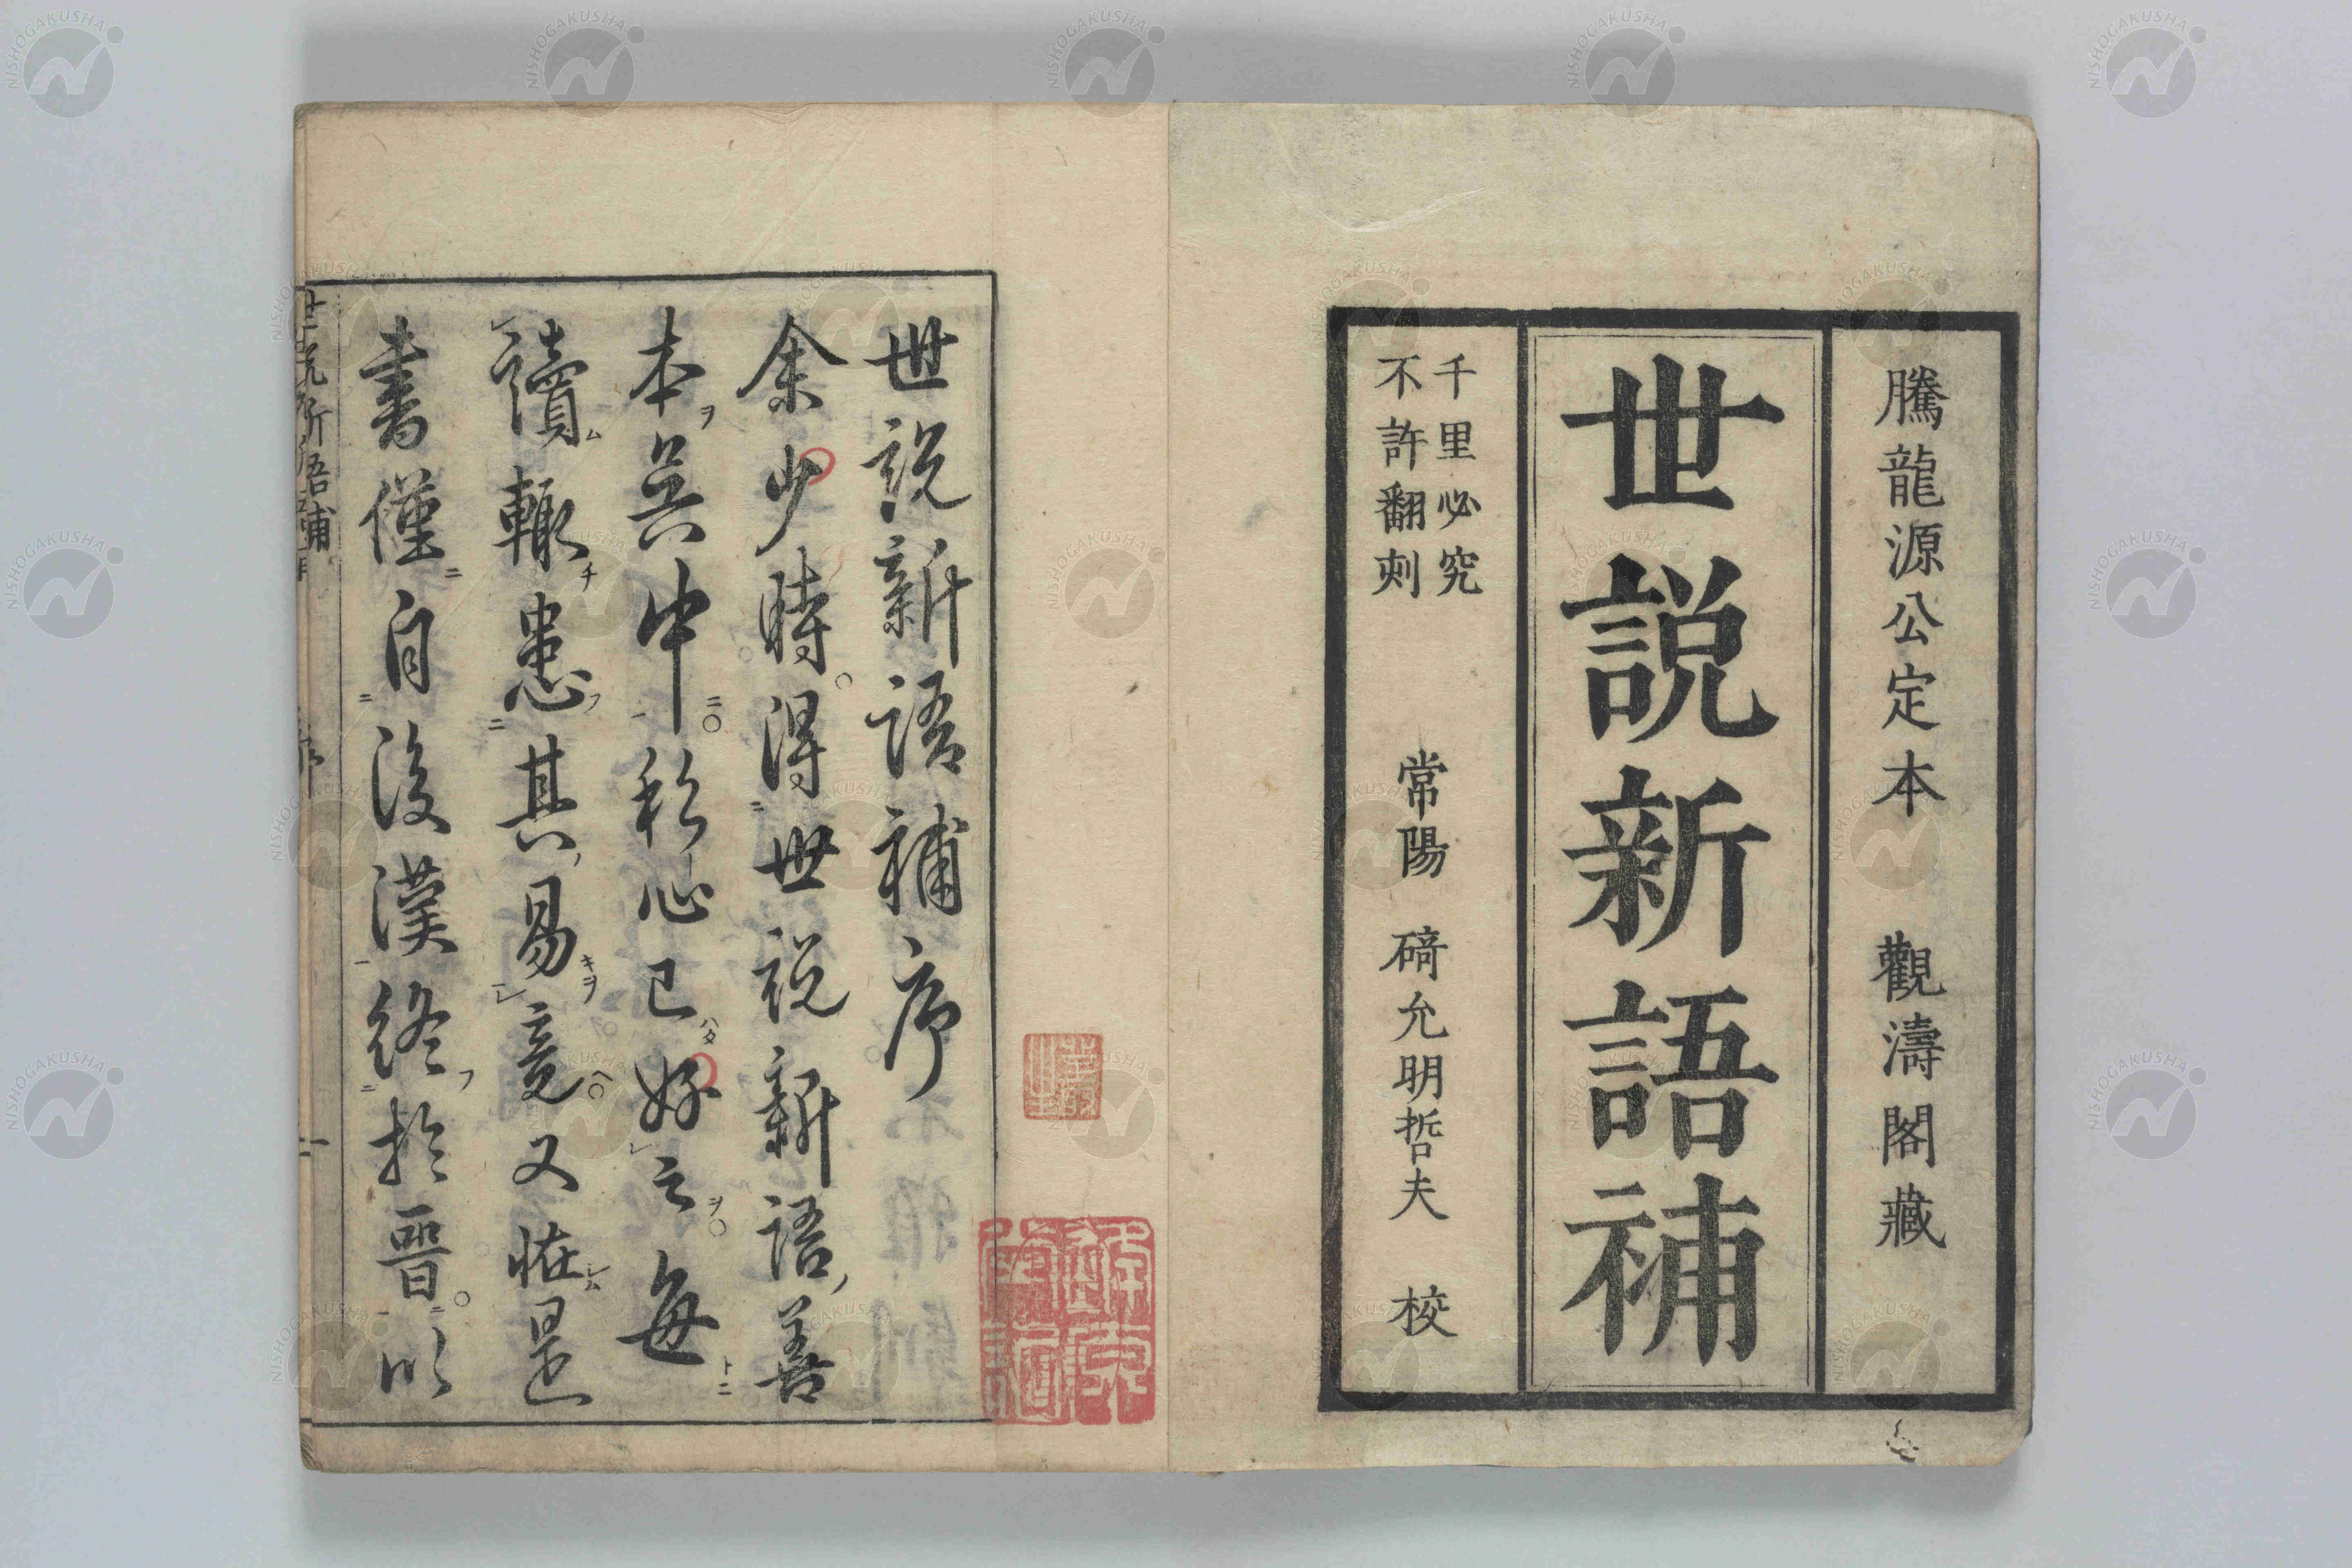 騰龍源公定本 觀濤閣藏
世説新語補
千里必究
不許翻刻
常陽 碕允明哲夫 校
世説新語補序
余少時得世説新語善
本吴中私心已好之每
讀輙患其易竟又恠是
書僅自後漢終於晉以
世説新語補
序
NISHOGAKUSHA